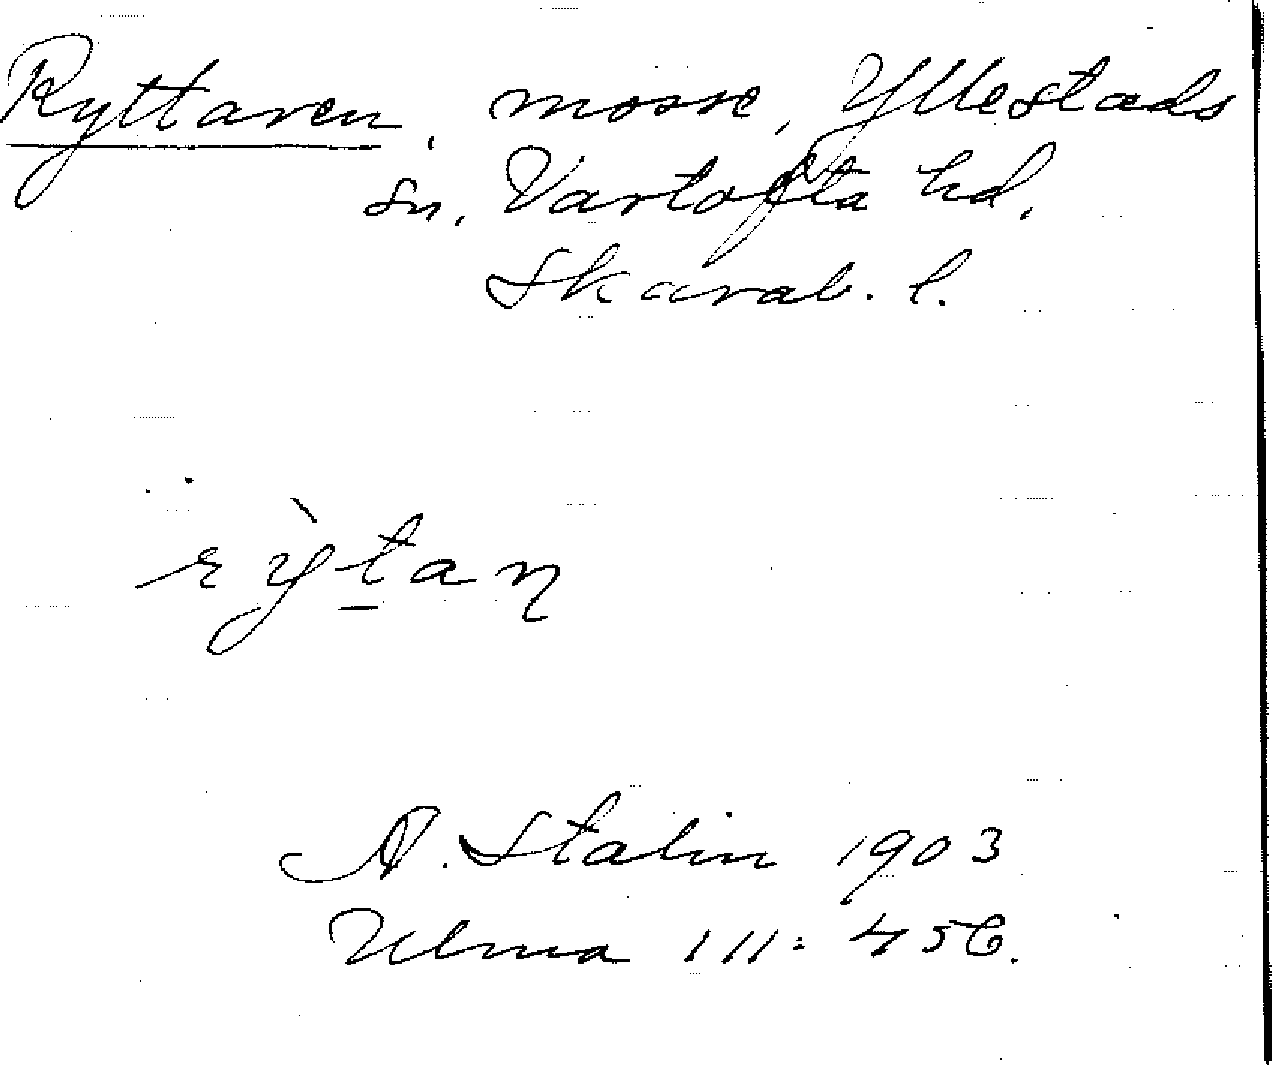 Ryttaren, mosse, Yllestads
sn, Vartofta hd.
Skarab. l.
rỳt̲aŋ
A. Stalin 1903
Ulma 111: 456.